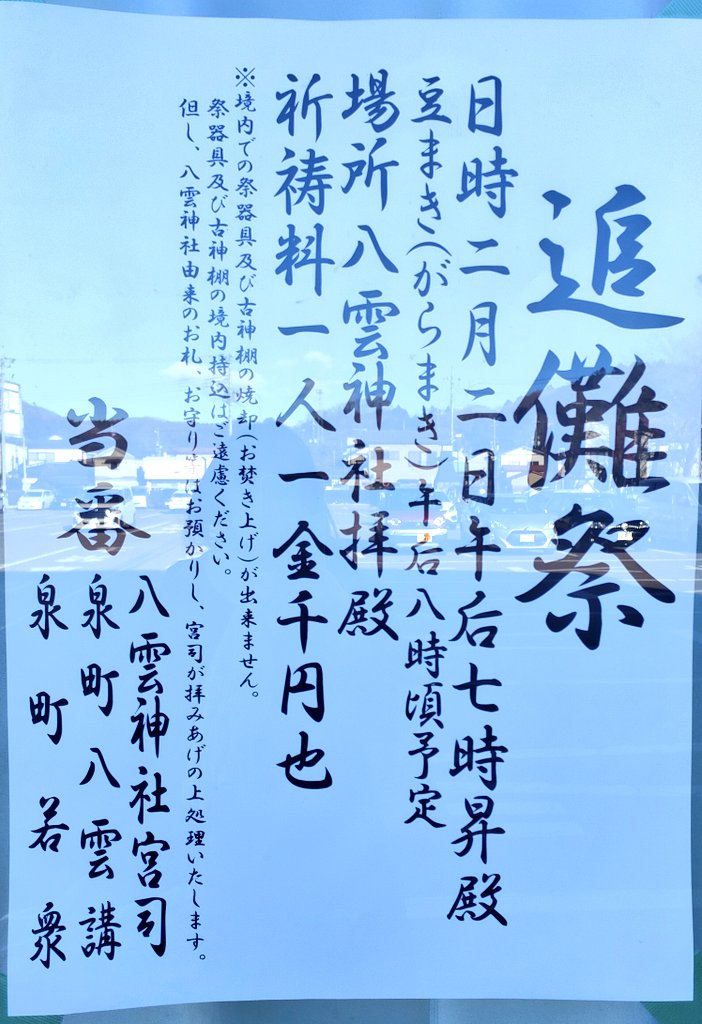 追儺祭
日時 二月二日午后七時昇殿
豆まき(がらまき)午后八時頃予定
場所 八雲神社拝殿
祈祷料 一人 一金千円也
※境内での祭器具及び古神棚の焼却(お焚き上げ)が出来ません。
祭器具及び古神棚の境内持込はご遠慮ください。
但し、八雲神社由来のお札、お守り等はお預かりし、宮司が拝みあげの上処理いたします。
当番
八雲神社宮司
泉町八雲講
泉町若衆